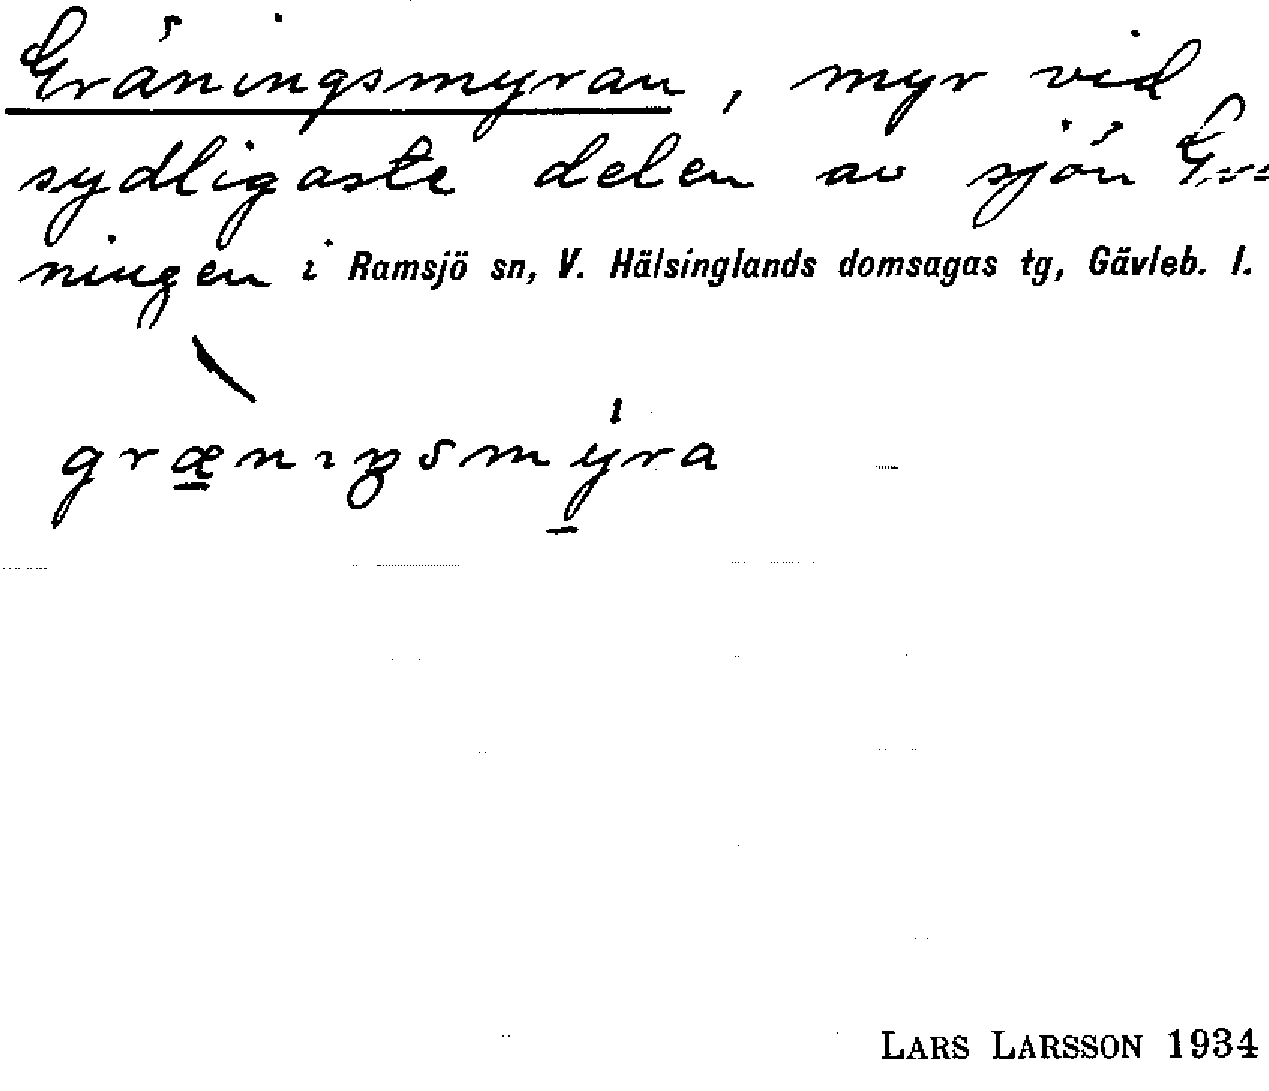 Gräningsmyran, myr vid
sydligaste delen av sjön
ningen i Ramsjö sn, V. Hälsinglands domsagas tg, Gävleb. l.
græ̲nıŋsmy̲̍ra
LARS LARSSON 1934